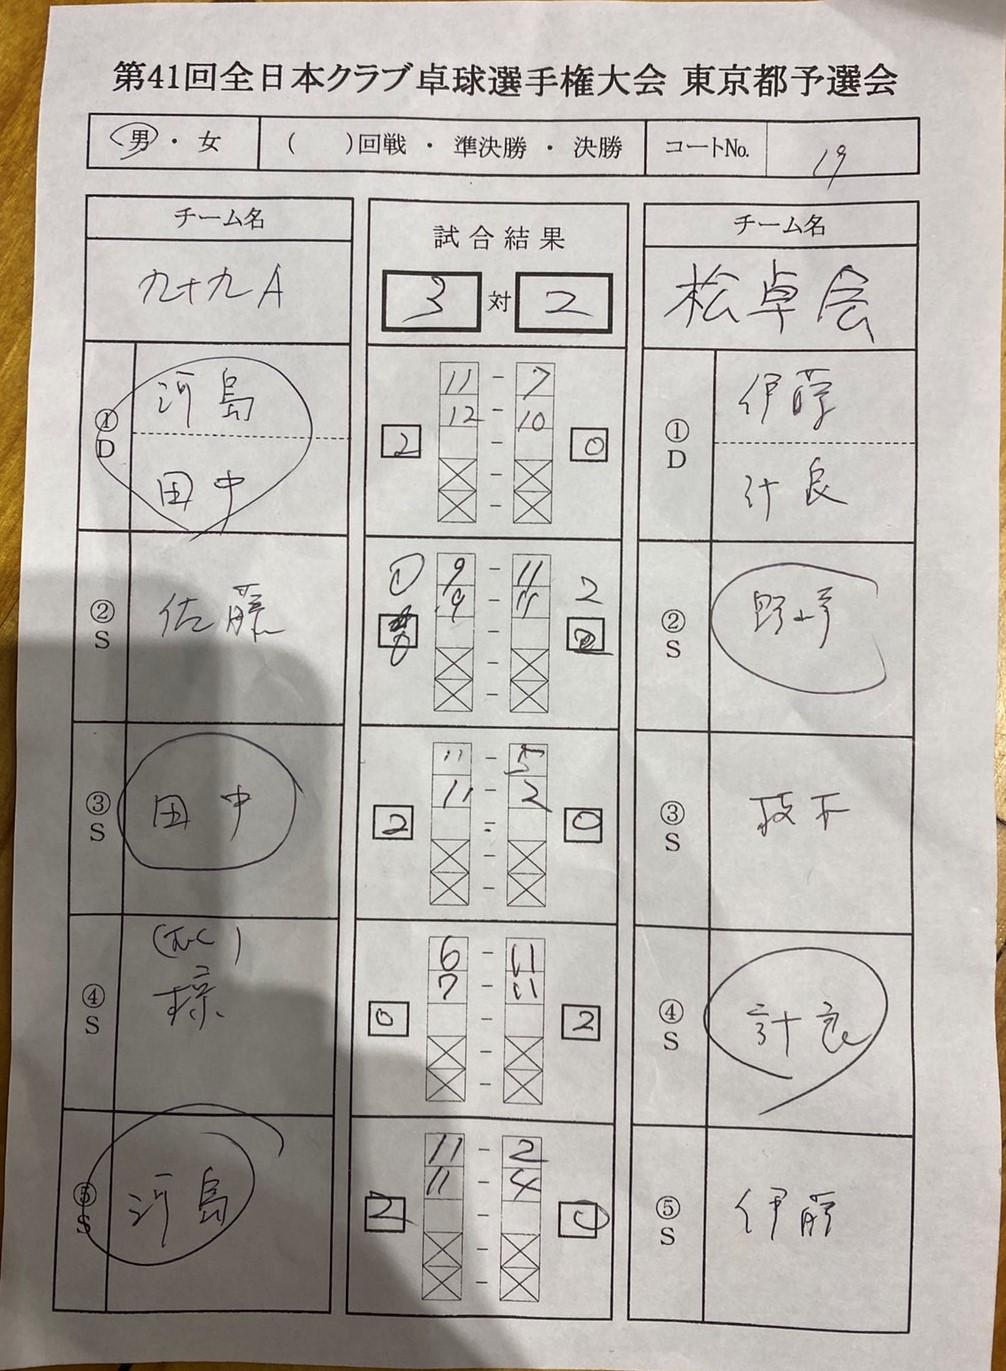 第41回全日本クラブ卓球選手権大会 東京都予選会
男・女 (　　)回戦 ・ 準決勝 ・ 決勝 コートNo. 19
チーム名 試合結果 チーム名
九十九A 3 対 2 松卓会
① D 河島 11 - 7 ① D 伊藤
12 - 10
2 - 0
田中 - 計良
-
② S 佐藤 9 - 11 2 ② S
9 - 11
-
-
-
③ S 田中 11 - 5 ③ S
11 - 2
2 - 0
-
-
④ S 6 - 11 ④ S 計良
7 - 11
0 - 2
-
-
⑤ S 河島 11 - 2 ⑤ S 伊藤
11 - 4
2 - 0
-
-